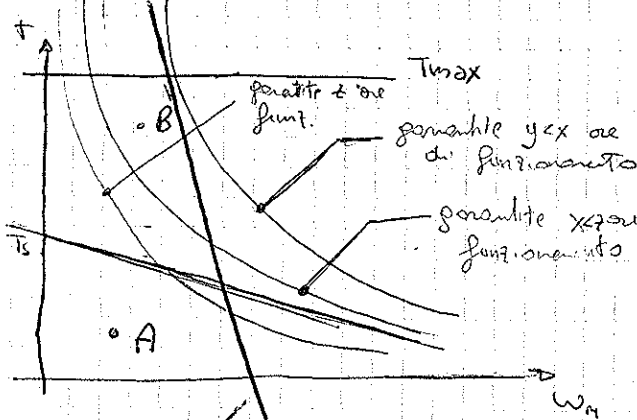 T
Tmax
garantite z ore
funz.
B
garantite y<x ore
di funzionamento
garantite x<z ore
funzionamento
Ts
A
ωM